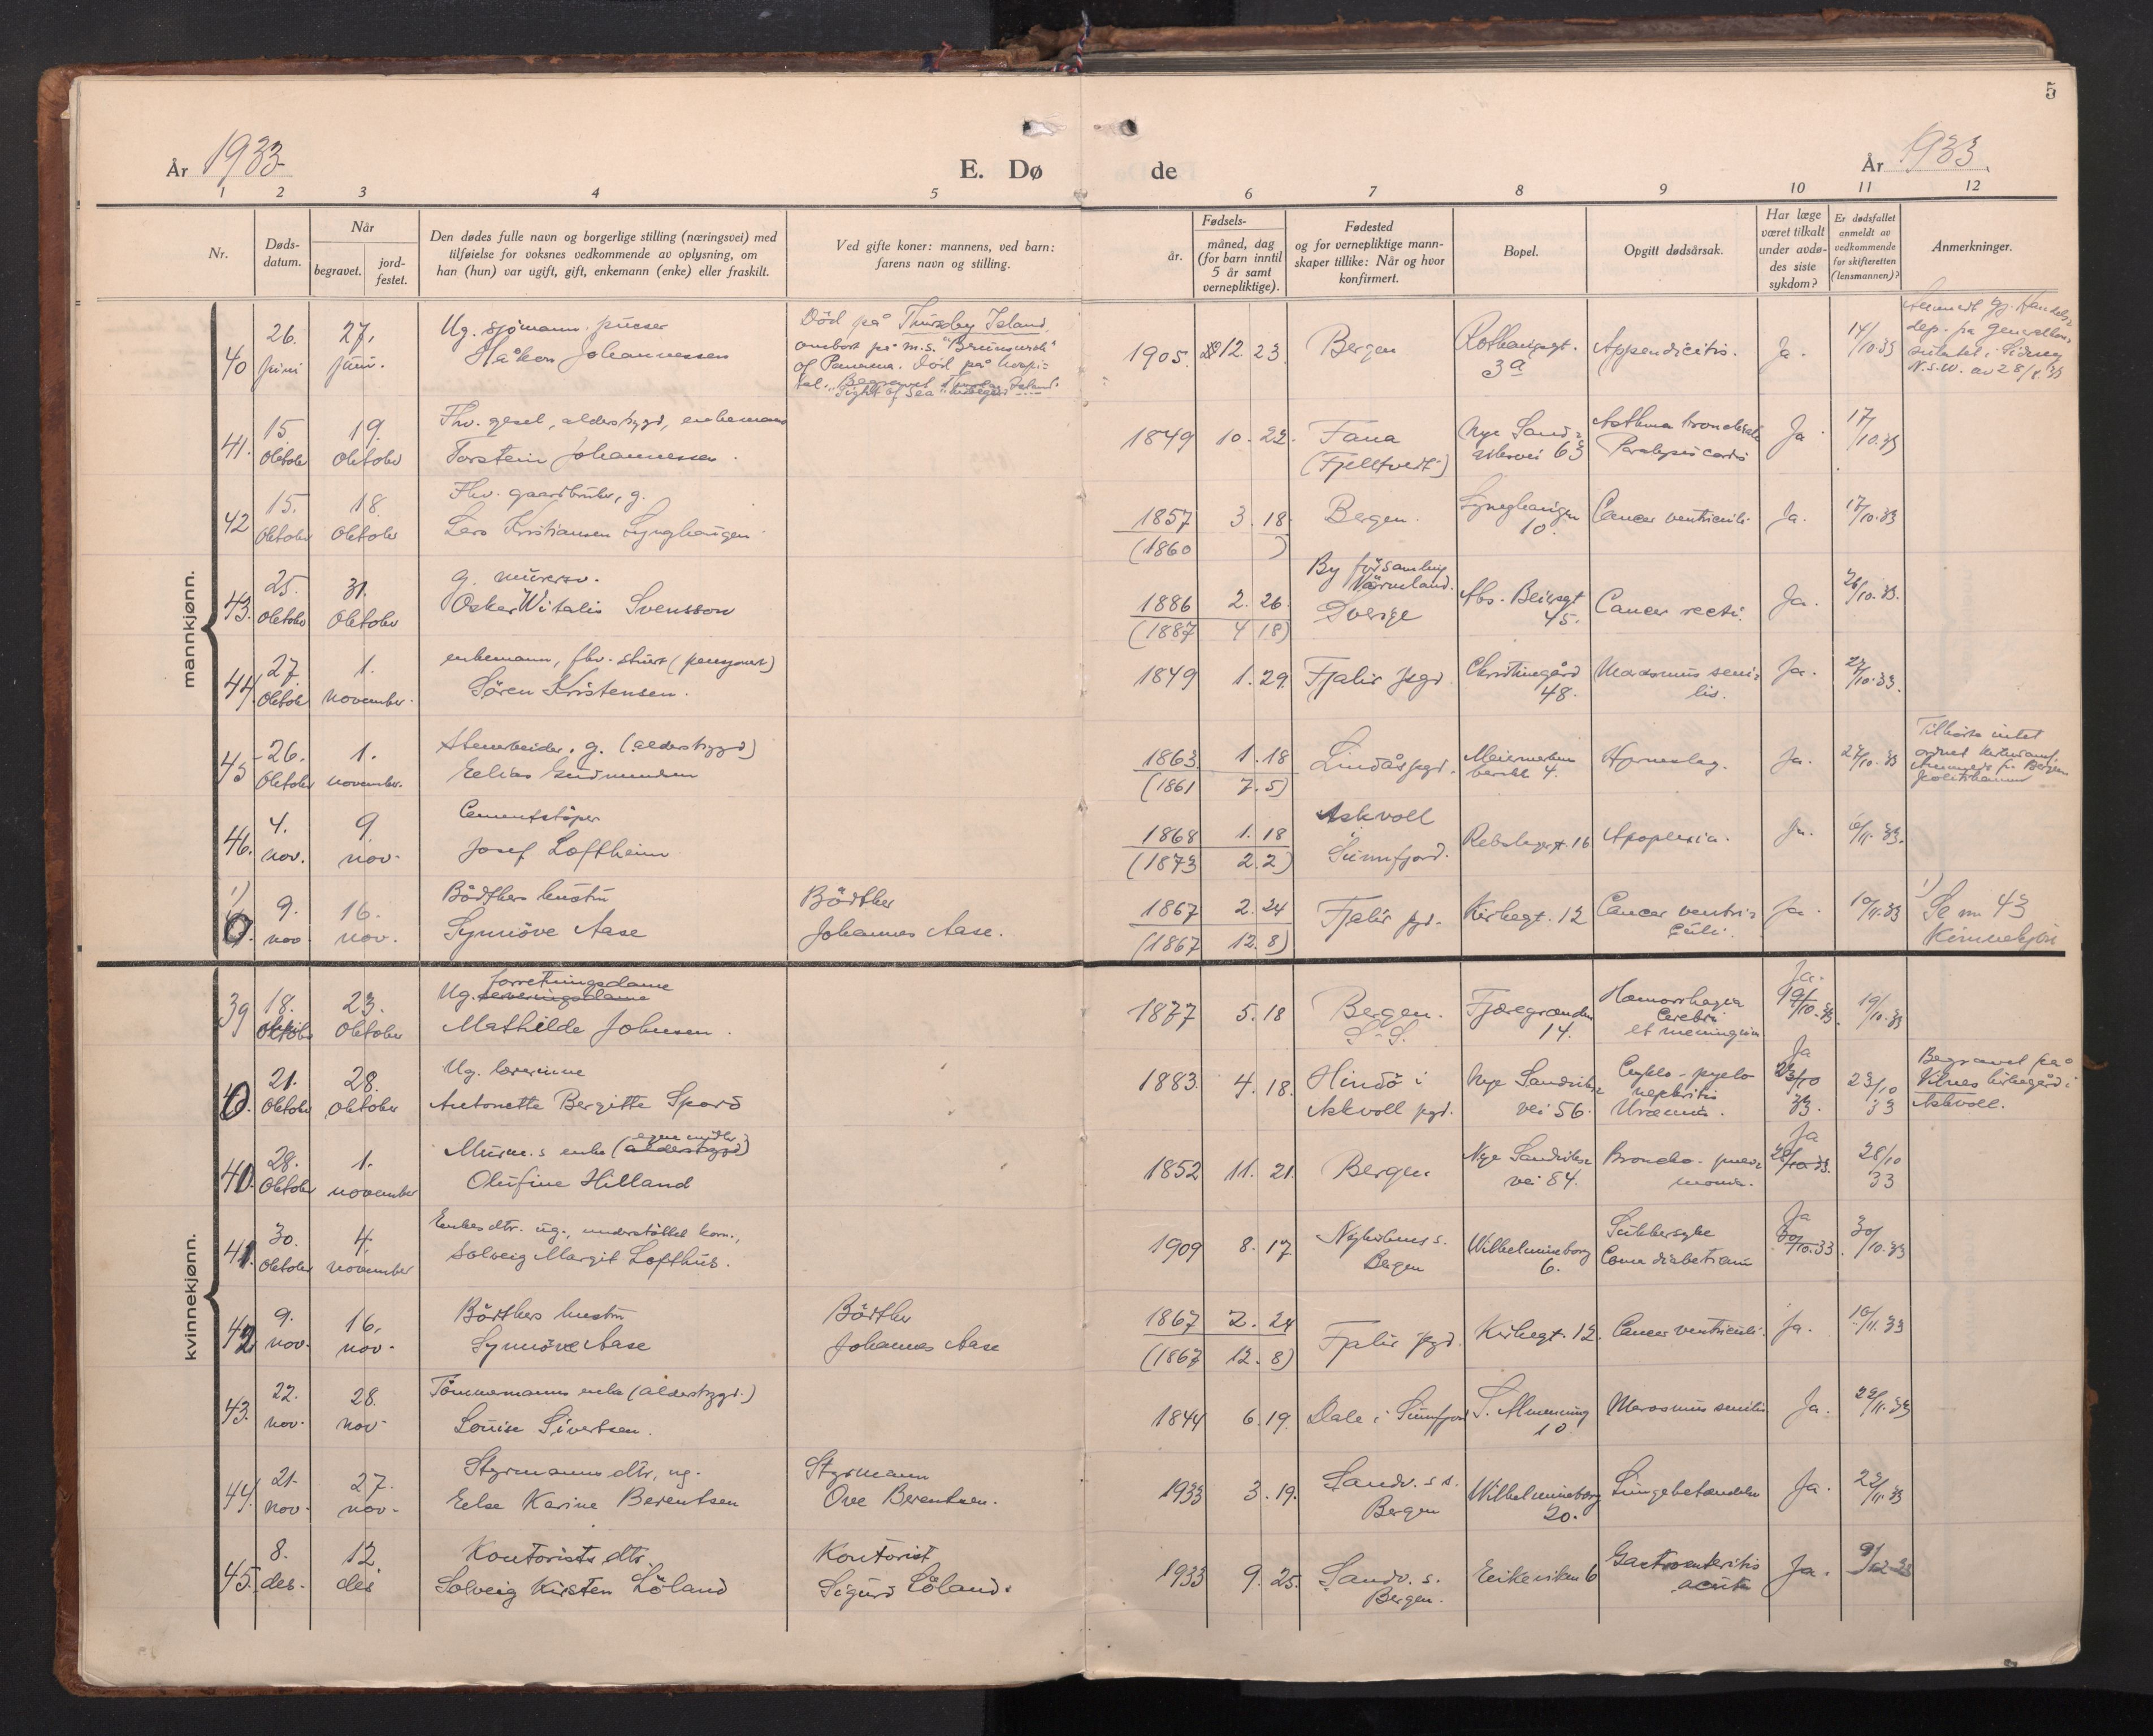 5
År 1933
E. Dø
de
År 1933.
1 2 3 4 5 6 7 8 9 10 11 12
Nr.
Døds-
datum.
Når
begravet.
jord-
festet.
Den dødes fulle navn og borgerlige stilling (næringsvei) med
tilføielse for voksnes vedkommende av oplysning, om
han (hun) var ugift, gift, enkemann (enke) eller fraskilt.
Ved gifte koner: mannens, ved barn:
farens navn og stilling.
Fødsels-
år.
måned, dag
(for barn inntil
5 år samt
vernepliktige).
Fødested
og for vernepliktige mann-
skaper tillike: Når og hvor
konfirmert.
Bopel.
Opgitt dødsårsak.
Har læge
været tilkalt
under avdø-
des siste
sykdom?
Er dødsfallet
anmeldt av
vedkommende
for skifteretten
(lensmannen)?
Anmerkninger.
mannkjønn.
40
26.
juni
27.
juni.
Ug. sjømann. pusser
Håkon Johannessen
Død på Thursday Island
ombord på m.s.
of Panama. Død på hospi-
tal. Begravet Thursday Island.
1905. 12. 23.
Bergen
3a
Appendicitis.
Ja.
14/10.33
N.S.W. av 28/8.33
41.
15.
Oktober
19.
Oktober
Fhv. gesel, alderstrygd, enkemann
Torstein Johannessen.
1849 10. 22.
Fana
(Fjelltvedt)
Nye Sand-
viksvei 63
Asthma bronchiale
Paralysis cordis
Ja
17/10.33
42
15.
Oktober
18.
Oktober
Fhv. gaardbruker, g.
Lars Kristiansen Lynghaugen
1857 3. 18.
(1860 )
Bergen.
Lynghaugen
10.
Cancer ventriculi.
Ja.
17/10.33
43.
25.
Oktober
31.
Oktober
g. murersv.
Oskar Witalis Svensson
1886 2. 26.
(1887 4 18)
By församling
Värmland.
Sverige
Abs. Beiersgt
45.
Cancer recti.
Ja.
26/10.33.
44.
27.
Oktober
1.
november.
enkemann, fhv. stuert (pensjonert)
Sören Kristensen.
1849 1. 29.
Fjalir pgd.
Christinegård
48.
Marasmus seni-
lis.
Ja.
27/10.33.
45
26.
Oktober
1.
november.
Stenarbeider, g. (alderstrygd)
Elias Gudmundsen
1863 1. 18
(1861 7. 5)
Lindås pgd.
4.
Hjerneslag.
Ja.
27/10.33
Tilhørte intet
46.
4.
nov.
9.
nov.
Cementstöper
Josef Loftheim
1868 1. 18
(1873 2. 2)
Askvoll
Sunnfjord.
Rebslagergt. 16
Apoplexia.
Ja.
6/11.33.
1)
0.
9.
nov
16.
nov.
Bådthers hustru
Synnöve Aase
Bådther
Johannes Aase.
1867 2. 24
(1867 12. 8)
Fjalir pgd.
Kirkegt. 12
Cancer ventri-
culi.
Ja.
10/11.33
1)
Se nr 43
Kvinnekjön
kvinnekjønn.
39
18.
Oktober
23.
Oktober
forretningsdame
Ug. serveringsdame
Mathilde Johnsen.
1877 5. 18
Bergen.
S. S.
Fjæregranden
14.
Hæmorrhagia
Cerebri
et meningium
Ja.
19/10.33.
19/10.33
40.
21.
Oktober
28.
Oktober
Ug. lærerinne
Antonette Bergitte Spord
1883 4. 18.
Hindö i
Askvoll pgd.
Nye Sandviks-
vei 56.
nephritis
Uræmia.
Ja
23/10
33.
23/10
33
Begravet på
Vilnes kirkegård i
Askvoll.
40.
28.
Oktober
1.
november
Murm.s enke (alderstrygd)
egne midler
Olufine Hilland
1852 11. 21.
Bergen
Nye Sandviks-
vei 84.
Broncho-pneu-
monia.
Ja
28/10.33.
28/10
33
41.
30.
Oktober
4.
november
Enkes dtr. ug., understöttet kom.,
Solveig Margit Lofthus.
1909 8. 17.
Nykirkens s.
Bergen
Wilhelmineborg
6.
Sukkersyke
Coma diabeticum
Ja
30/10.33
30/10.33
42
9.
nov.
16.
nov.
Bådthers hustru
Synnöve Aase
Bådther
Johannes Aase
1867 2. 24
(1867 12. 8)
Fjalir pgd.
Kirkegt. 12.
Cancer ventriculi.
Ja.
10/11.33
43.
22.
nov.
28.
nov
Tömmermanns enke (alderstrygd.)
Louise Sivertsen.
1844 6. 19.
Dale i Sunnfjord
S. Almenning
10.
Marasmus senilis
Ja.
22/11.33
44.
21.
nov.
27.
nov.
Styrmanns dtr, ug.
Else Karine Berentsen
Styrmann
Ove Berentsen.
1933 3. 19.
Sandv. s s.
Bergen
Wilhelmineborg
20.
Lungebetændelse
Ja.
22/11.33
45.
8.
des.
12.
des
Kontorists dtr.
Solveig Kirsten Löland
Kontorist
Sigurd Löland.
1933 9. 25.
Sandv. s.
Bergen.
Eikeviken 6
Gastroenteritis
acuta
Ja.
9/12-33